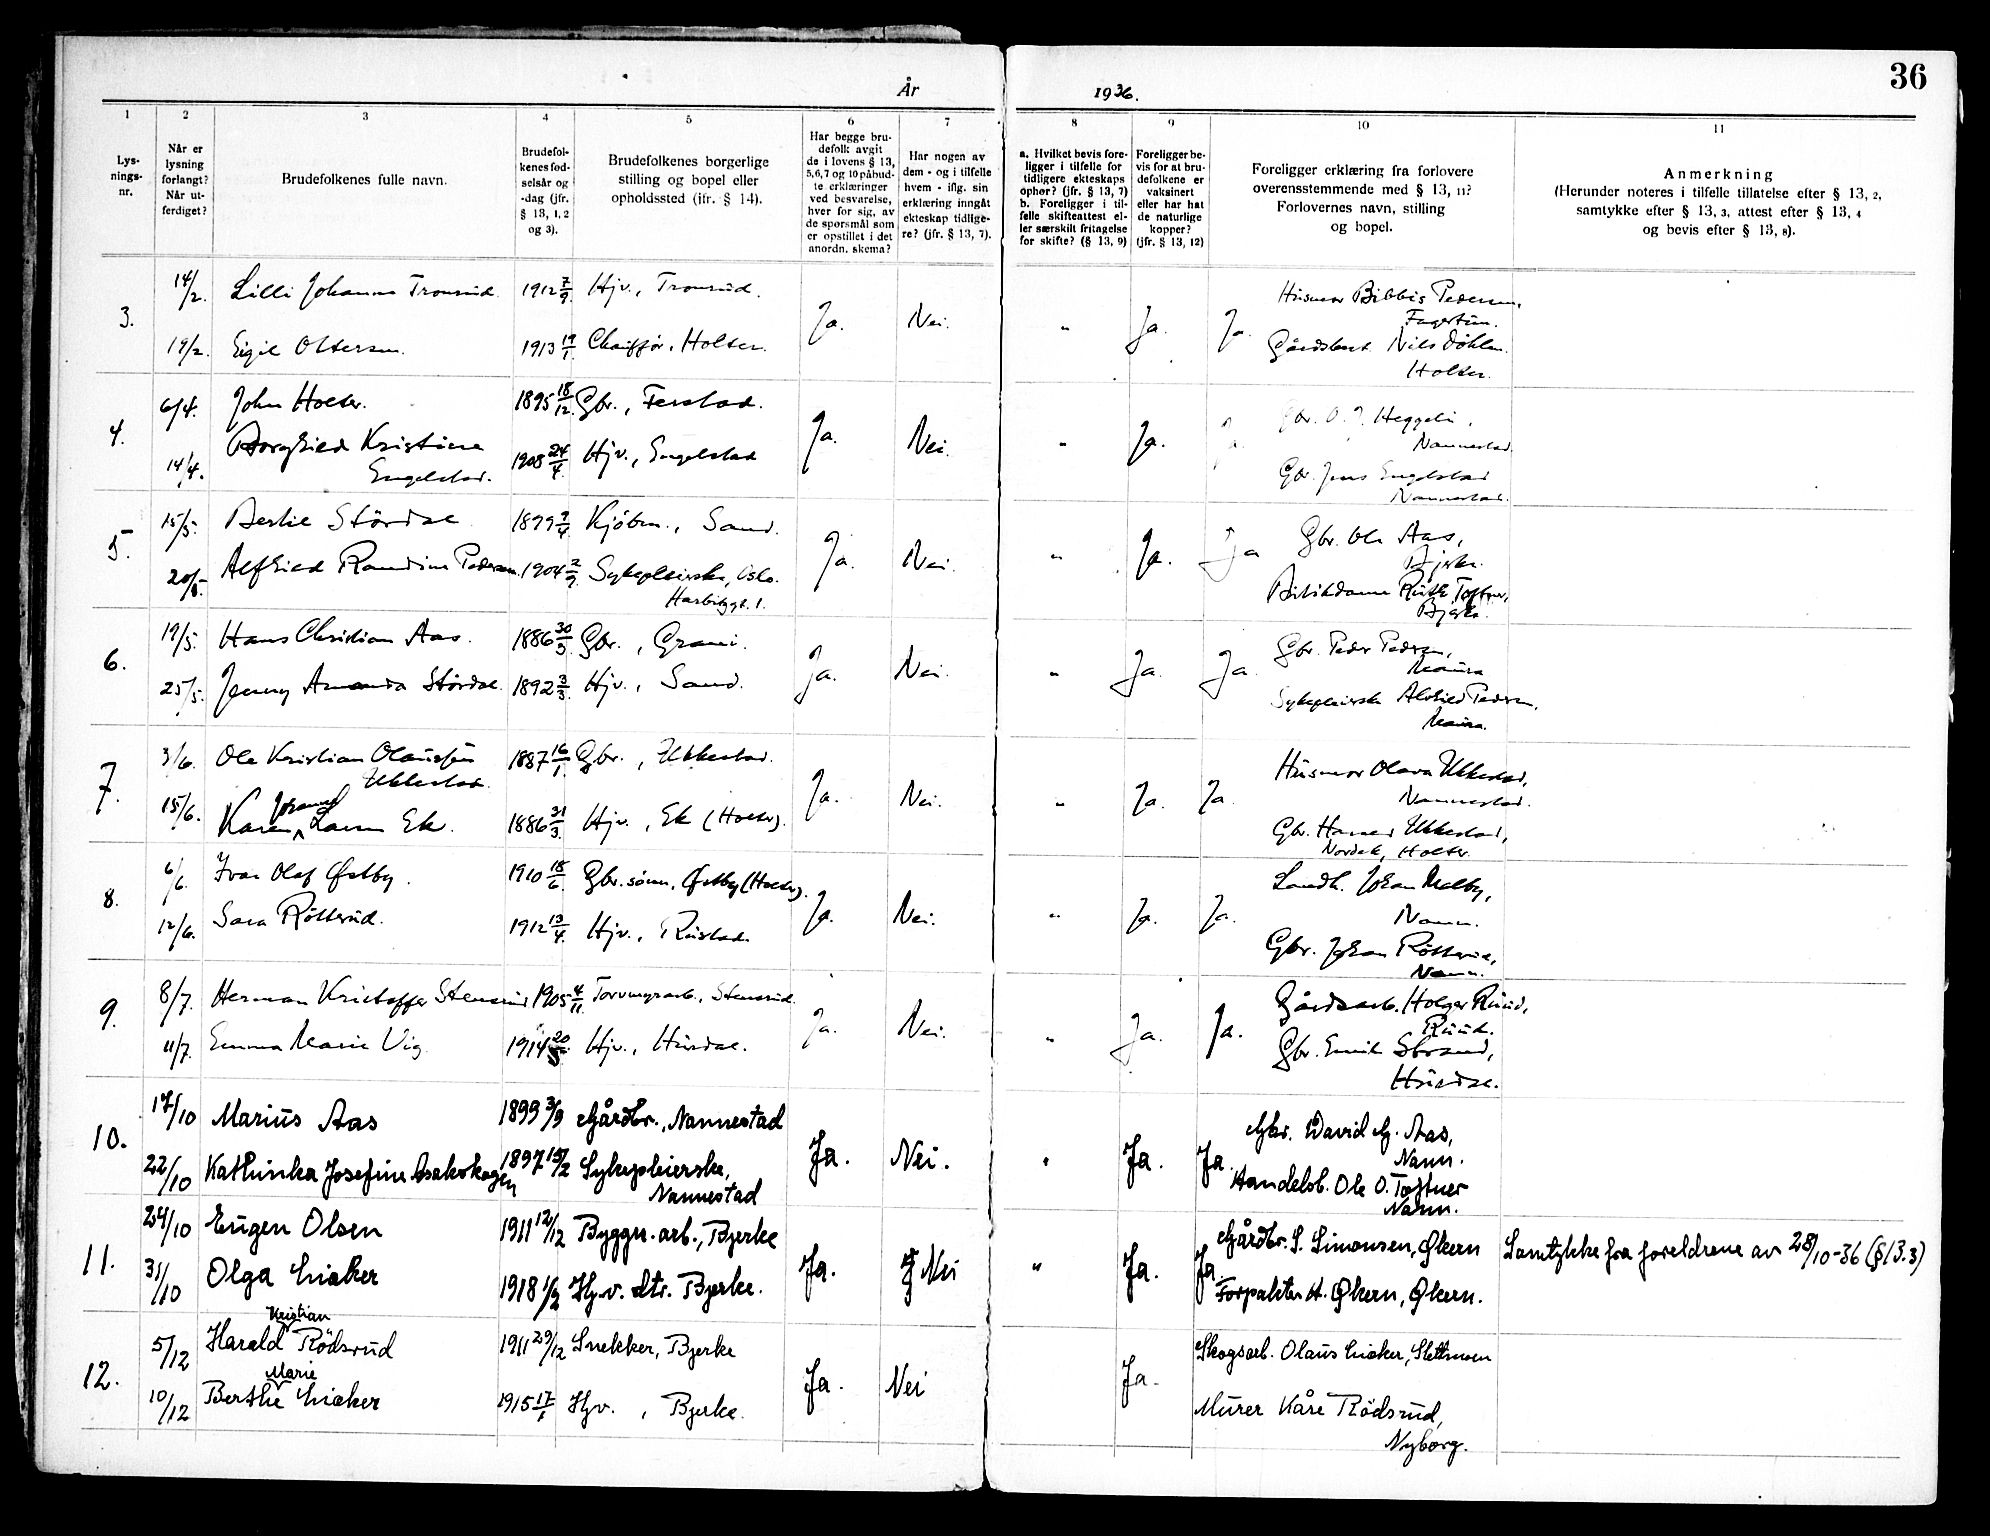 36
År 1936.
1 2 3 4 5 6 7 8 9 10 11
Lys-
nings-
nr.
Når er
lysning
forlangt?
Når ut-
ferdiget?
Brudefolkenes fulle navn.
Brudefol-
kenes fød-
selsår og
-dag (jfr.
§ 13, 1, 2
og 3).
Brudefolkenes borgerlige
stilling og bopel eller
opholdssted (jfr. § 14).
Har begge bru-
defolk avgit
de i lovens § 13,
5,6,7 og 10 påbud-
te erklæringer
ved besvarelse,
hver for sig, av
de spørsmål som
er opstillet i det
anordn. skema?
Har nogen av
dem - og i tilfelle
hvem - iflg. sin
erklæring inngåt
ekteskap tidlige-
re? (jfr. § 13, 7).
a. Hvilket bevis fore-
ligger i tilfelle for
tidligere ekteskaps
ophør? (jfr. § 13, 7)
b. Foreligger i til-
felle skifteattest el-
ler særskilt fritagelse
for skifte? (§ 13, 9)
Foreligger be-
vis for at bru-
defolkene er
vaksinert
eller har hat
de naturlige
kopper?
(jfr. § 13, 12)
Foreligger erklæring fra forlovere
overensstemmende med § 13, 11?
Forlovernes navn, stilling
og bopel.
Anmerkning
(Herunder noteres i tilfelle tillatelse efter § 13, 2,
samtykke efter § 13, 3, attest efter § 13, 4
og bevis efter § 13, 8).
3. 14/2. Lilli Johanne Tronsrud 1912 7/9. Hjv., Tronsrud. Ja. Nei. " Ja. Ja. Husmor Pedersen,
19/2. Eigil Ottersen. 1913 19/1. Chauffør, Holter. Gårdsbest. Nils Döhlen.
Holter.
4. 6/4. John Holter. 1895 18/12. Gbr., Ja. Nei. " Ja. Ja. Gbr. Heggeli,
Nannestad.
14/4. Borghild Kristine
Engelstad. 1908 24/4. Hjv., Engelstad Gbr. Jens Engelstad
Nannestad.
5. 15/5. Stördal 1899 7/4 Kjöbm., Sand. Ja. Nei. " Ja. Ja Gbr. Ole Aas,
Bjerke.
20/5. Alfhild Randine Pedersen. 1904 2/9. Sykepleierske, Oslo. Ruth Toftner,
Harbitzgt. 1. Bjerke.
6. 19/5. Hans Christian Aas. 1886 30/3. Gbr., Grani. Ja. Nei. " Ja. Ja. Gbr. Peder Pedersen,
Maura
25/5. Jenny Amanda Stördal. 1892 3/3. Hjv., Sand. Sykepleierske Alvhild Pedersen,
Maura.
7. 3/6. Ole Kristian Olaussen
Ukkestad. 1887 16/1. Gbr., Ukkestad. Ja. Nei. " Ja. Ja. Husmor Olava Ukkestad,
Nannestad.
15/6. Karen Laura Ek. 1886 31/3. Hjv., Ek (Holter). Gbr. Ukkestad,
Nordek, Holter.
8. 6/6. Ivar Olaf Østby. 1910 18/6. Gbr. sönn, Østby (Holter). Ja. Nei. " Ja. Ja. Landh. Johan Melby,
Nann.
12/6. Sara Rötterud. 1912 13/4. Hjv., Rustad. Gbr. Johan Rötterud,
Nann.
9. 8/7. Herman Kristoffer Stensrud 1905 4/11. Torvmyrarb., Stensrud. Ja. Nei. " Ja. Ja. Gårdsarb. Holger Ruud,
Ruud.
11/7. Emma Marie Vig. 1914 20/5. Hjv., Hurdal. Gbr. Emil
Hurdal.
10. 17/10 Marius Aas 1899 3/9 Gårdbr., Nannestad Ja. Nei. " Ja. Ja. Gbr. David G. Aas,
Nann.
22/10 Kathinka Josefine Asakskogen 1897 15/2 Sykepleierske,
Nannestad Handelsb. Ole O. Toftner
Nann.
11. 24/10 Eugen Olsen 1911 12/12 Byggn. arb., Bjerke Ja. Nei " Ja. Ja. Gårdbr. S. Simonsen, Økern Samtykke fra foreldrene av 28/10-36 (§13.3)
31/10 Olga Liaker 1918 1/2 Hjv. dtr. Bjerke. Forpakter H. Økern, Økern.
12. 5/12 Harald Kristian Rödsrud 1911 29/12 Snekker, Bjerke Ja. Nei Ja. Skogsarb. Olaus Liaker, Slettmoen
10/12 Berthe Marie Liaker 1915 17/1 Hjv., Bjerke. Murer Kåre Rödsrud,
Nyborg.